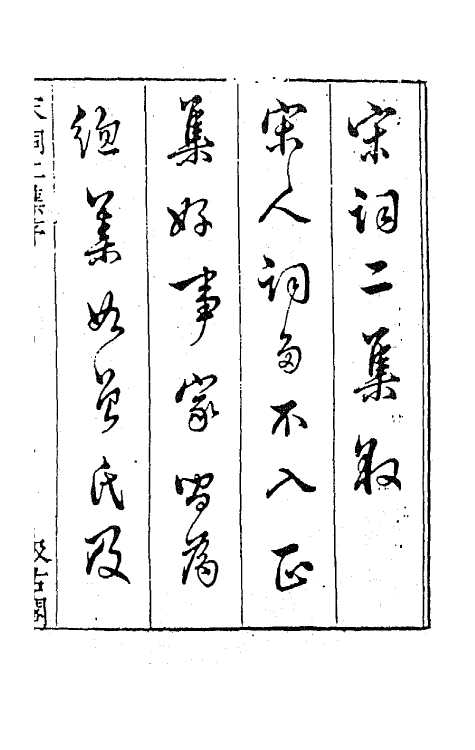 宋詞二集敘
宋人詞多不入正
集好事家皆為
總集如曾氏及
宋詞二集序
汲古閣